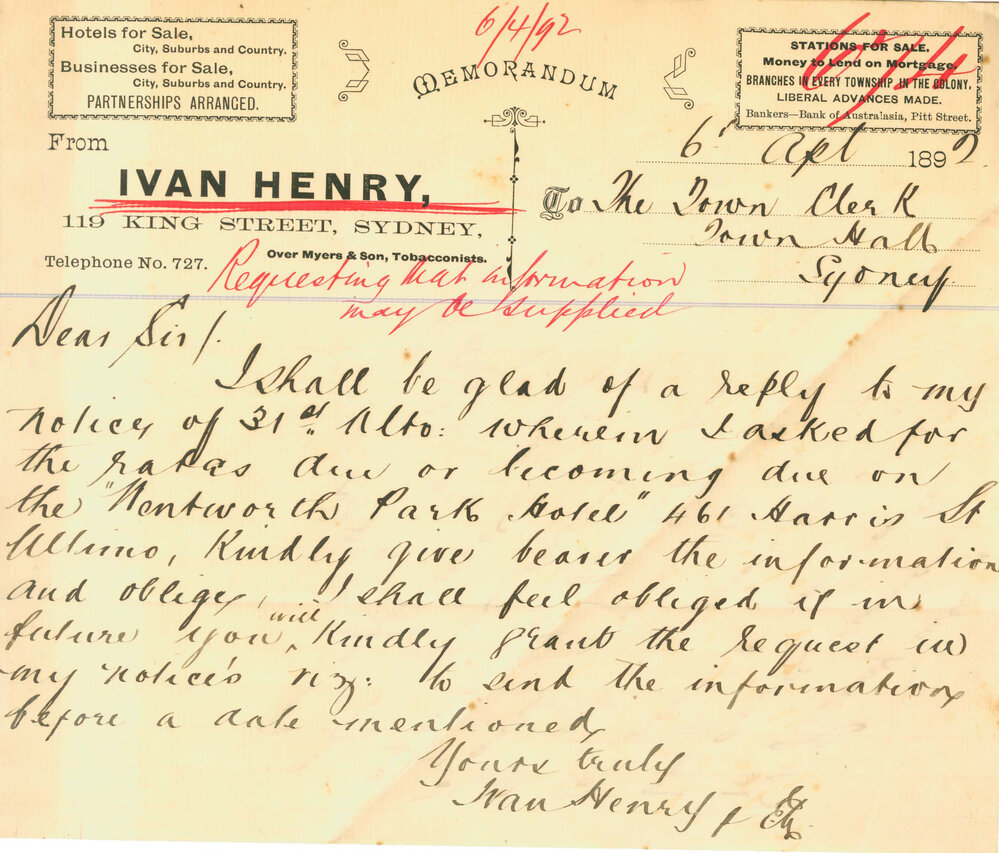 Hotels for Sale,
City, Suburbs and Country.
Businesses for Sale,
City, Suburbs and Country.
PARTNERSHIPS ARRANGED.
6/4/92
MEMORANDUM
STATIONS FOR SALE.
Money to Lend on Mortgage.
BRANCHES IN EVERY TOWNSHIP IN THE COLONY.
LIBERAL ADVANCES MADE.
Bankers—Bank of Australasia, Pitt Street.
From
IVAN HENRY,
119 KING STREET, SYDNEY,
Over Myers & Son, Tobacconists.
Telephone No. 727.
6 Apl 1892
To The Town Clerk
Town Hall
Sydney
Requesting that information
may be supplied
Dear Sir/.
I shall be glad of a reply to my
notice of 31st Ulto: wherein I asked for
the rates due or becoming due on
the "Wentworth Park Hotel" 461 Harris St
Ultimo, Kindly give bearer the information
and oblige, I shall feel obliged if in
future you will Kindly grant the request in
my notice's viz: to send the information
before a date mentioned
Yours truly
Ivan Henry